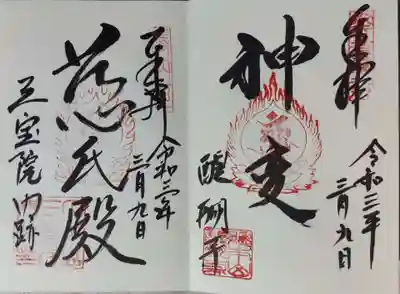 奉拝
令和三年
三月九日
神変
醍醐寺
奉拝
令和三年
三月九日
慈氏殿
三宝院門跡